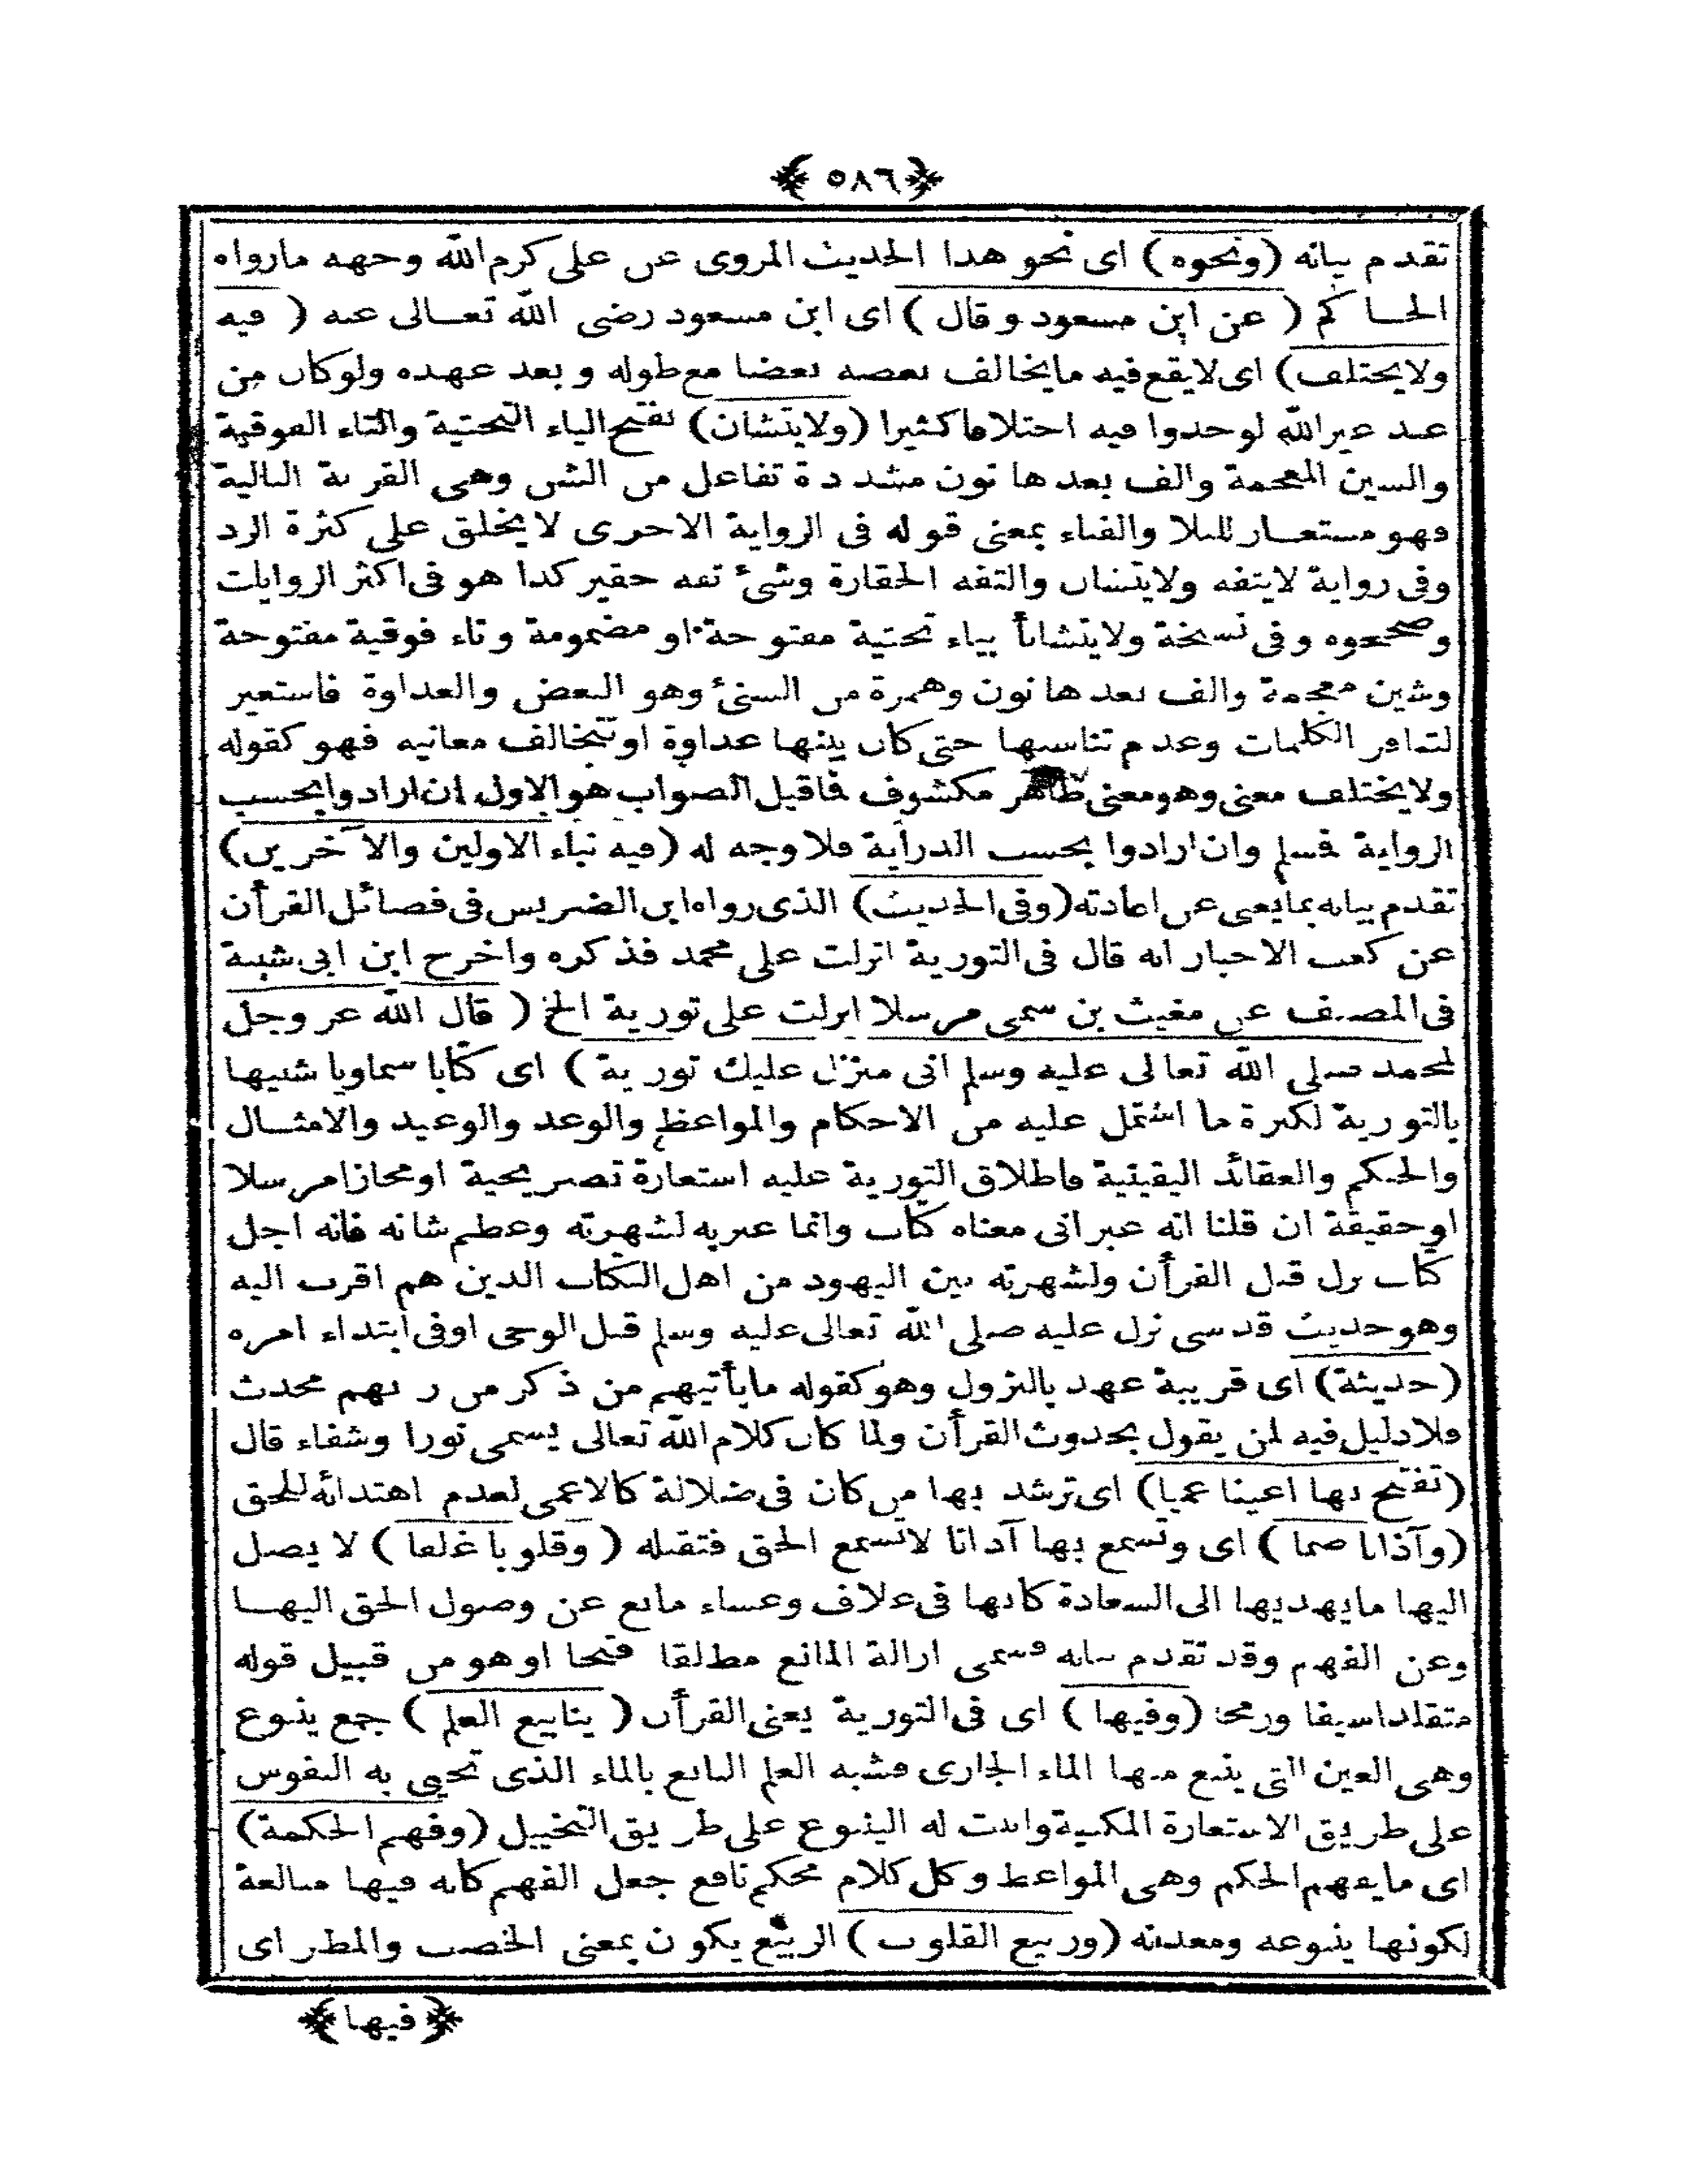 ﴿ ٥٨٦ ﴾
تقدم بيانه (ونحوه) اى نحو هذا الحديث المروى عن على كرم الله وجهه مارواه
الحاكم (عن ابن مسعود وقال) اى ابن مسعود رضى الله تعالى عنه (فيه
ولايختلف) اى لايقع فيه مايخالف بعضه بعضا مع طوله وبعد عهده ولوكان من
عند غير الله لوجدوا فيه اختلافا كثيرا (ولايتشان) بفتح الياء التحتية والتاء الفوقية
والشين المعجمة والف بعدها نون مشددة تفاعل من الشن وهى القربة البالية
فهو مستعار للبلا والفناء بمعنى قوله فى الرواية الاخرى لايخلق على كثرة الرد
وفى رواية لايتفه ولايتشان والتفه الحقارة وشئ تفه حقير كذا هو فى اكثر الروايات
وصححوه وفى نسخة ولايتشانأ بياء تحتية مفتوحة او مضمومة وتاء فوقية مفتوحة
وشين معجمة والف بعدها نون وهمزة من الشنئ وهو البغض والعداوة فاستعير
لتنافر الكلمات وعدم تناسبها حتى كان بينها عداوة او تتخالف معانيه فهو كقوله
ولايختلف معنى وهو معنى ظاهر مكشوف فاقيل الصواب هو الاول ان ارادوا بحسب
الرواية فسلم وان ارادوا بحسب الدراية فلا وجه له (فيه نباء الاولين والآخرين)
تقدم بيانه بمايغنى عن اعادته (وفى الحديث) الذى رواه ابن الضريس فى فضائل القرأن
عن كعب الاحبار انه قال فى التورية انزلت على محمد فذكره واخرج ابن ابى شيبة
فى المصنف عن مغيث بن سمى مرسلا انزلت على تورية الخ (قال الله عز وجل
لمحمد صلى الله تعالى عليه وسلم انى منزل عليك تورية) اى كتابا سماويا شبيها
بالتورية لكثرة ما اشتمل عليه من الاحكام والمواعظ والوعد والوعيد والامثال
والحكم والعقائد اليقينية فاطلاق التورية عليه استعارة تصريحية اومجازا مرسلا
اوحقيقة ان قلنا انه عبرانى معناه كتاب وانما عبربه لشهرته وعظم شانه فانه اجل
كتاب نزل قبل القرأن ولشهرته بين اليهود من اهل الكتاب الذين هم اقرب اليه
وهو حديث قدسى نزل عليه صلى الله تعالى عليه وسلم قبل الوحى اوفى ابتداء امره
(حديثة) اى قريبة عهد بالنزول وهو كقوله مايأتيهم من ذكر من ربهم محدث
فلا دليل فيه لمن يقول بحدوث القرأن ولما كان كلام الله تعالى يسمى نورا وشفاء قال
(تفتح بها اعينا عميا) اى ترشد بها من كان فى ضلالة كالاعمى لعدم اهتدائه للحق
(وآذانا صما) اى وتسمع بها آذانا لاتسمع الحق فتقبله (وقلوبا غلفا) لا يصل
اليها مايهديها الى السعادة كانها فى غلاف وغشاء مانع عن وصول الحق اليها
وعن الفهم وقد تقدم بيانه فسمى ازالة المانع مطلقا فتحا اوهو من قبيل قوله
متقلدا سيفا ورمحا (وفيها) اى فى التورية يعنى القرأن (ينابيع العلم) جمع ينبوع
وهى العين التى ينبع منها الماء الجارى فشبه العلم النابع بالماء الذى تحيى به النفوس
على طريق الاستعارة المكنية واثبت له الينبوع على طريق التخييل (وفهم الحكمة)
اى مايفهم الحكم وهى المواعظ وكل كلام محكم نافع جعل الفهم كانه فيها مبالغة
لكونها ينبوعه ومعدنه (وربيع القلوب) الربيع يكون بمعنى الخصب والمطر اى
﴿ فيها ﴾